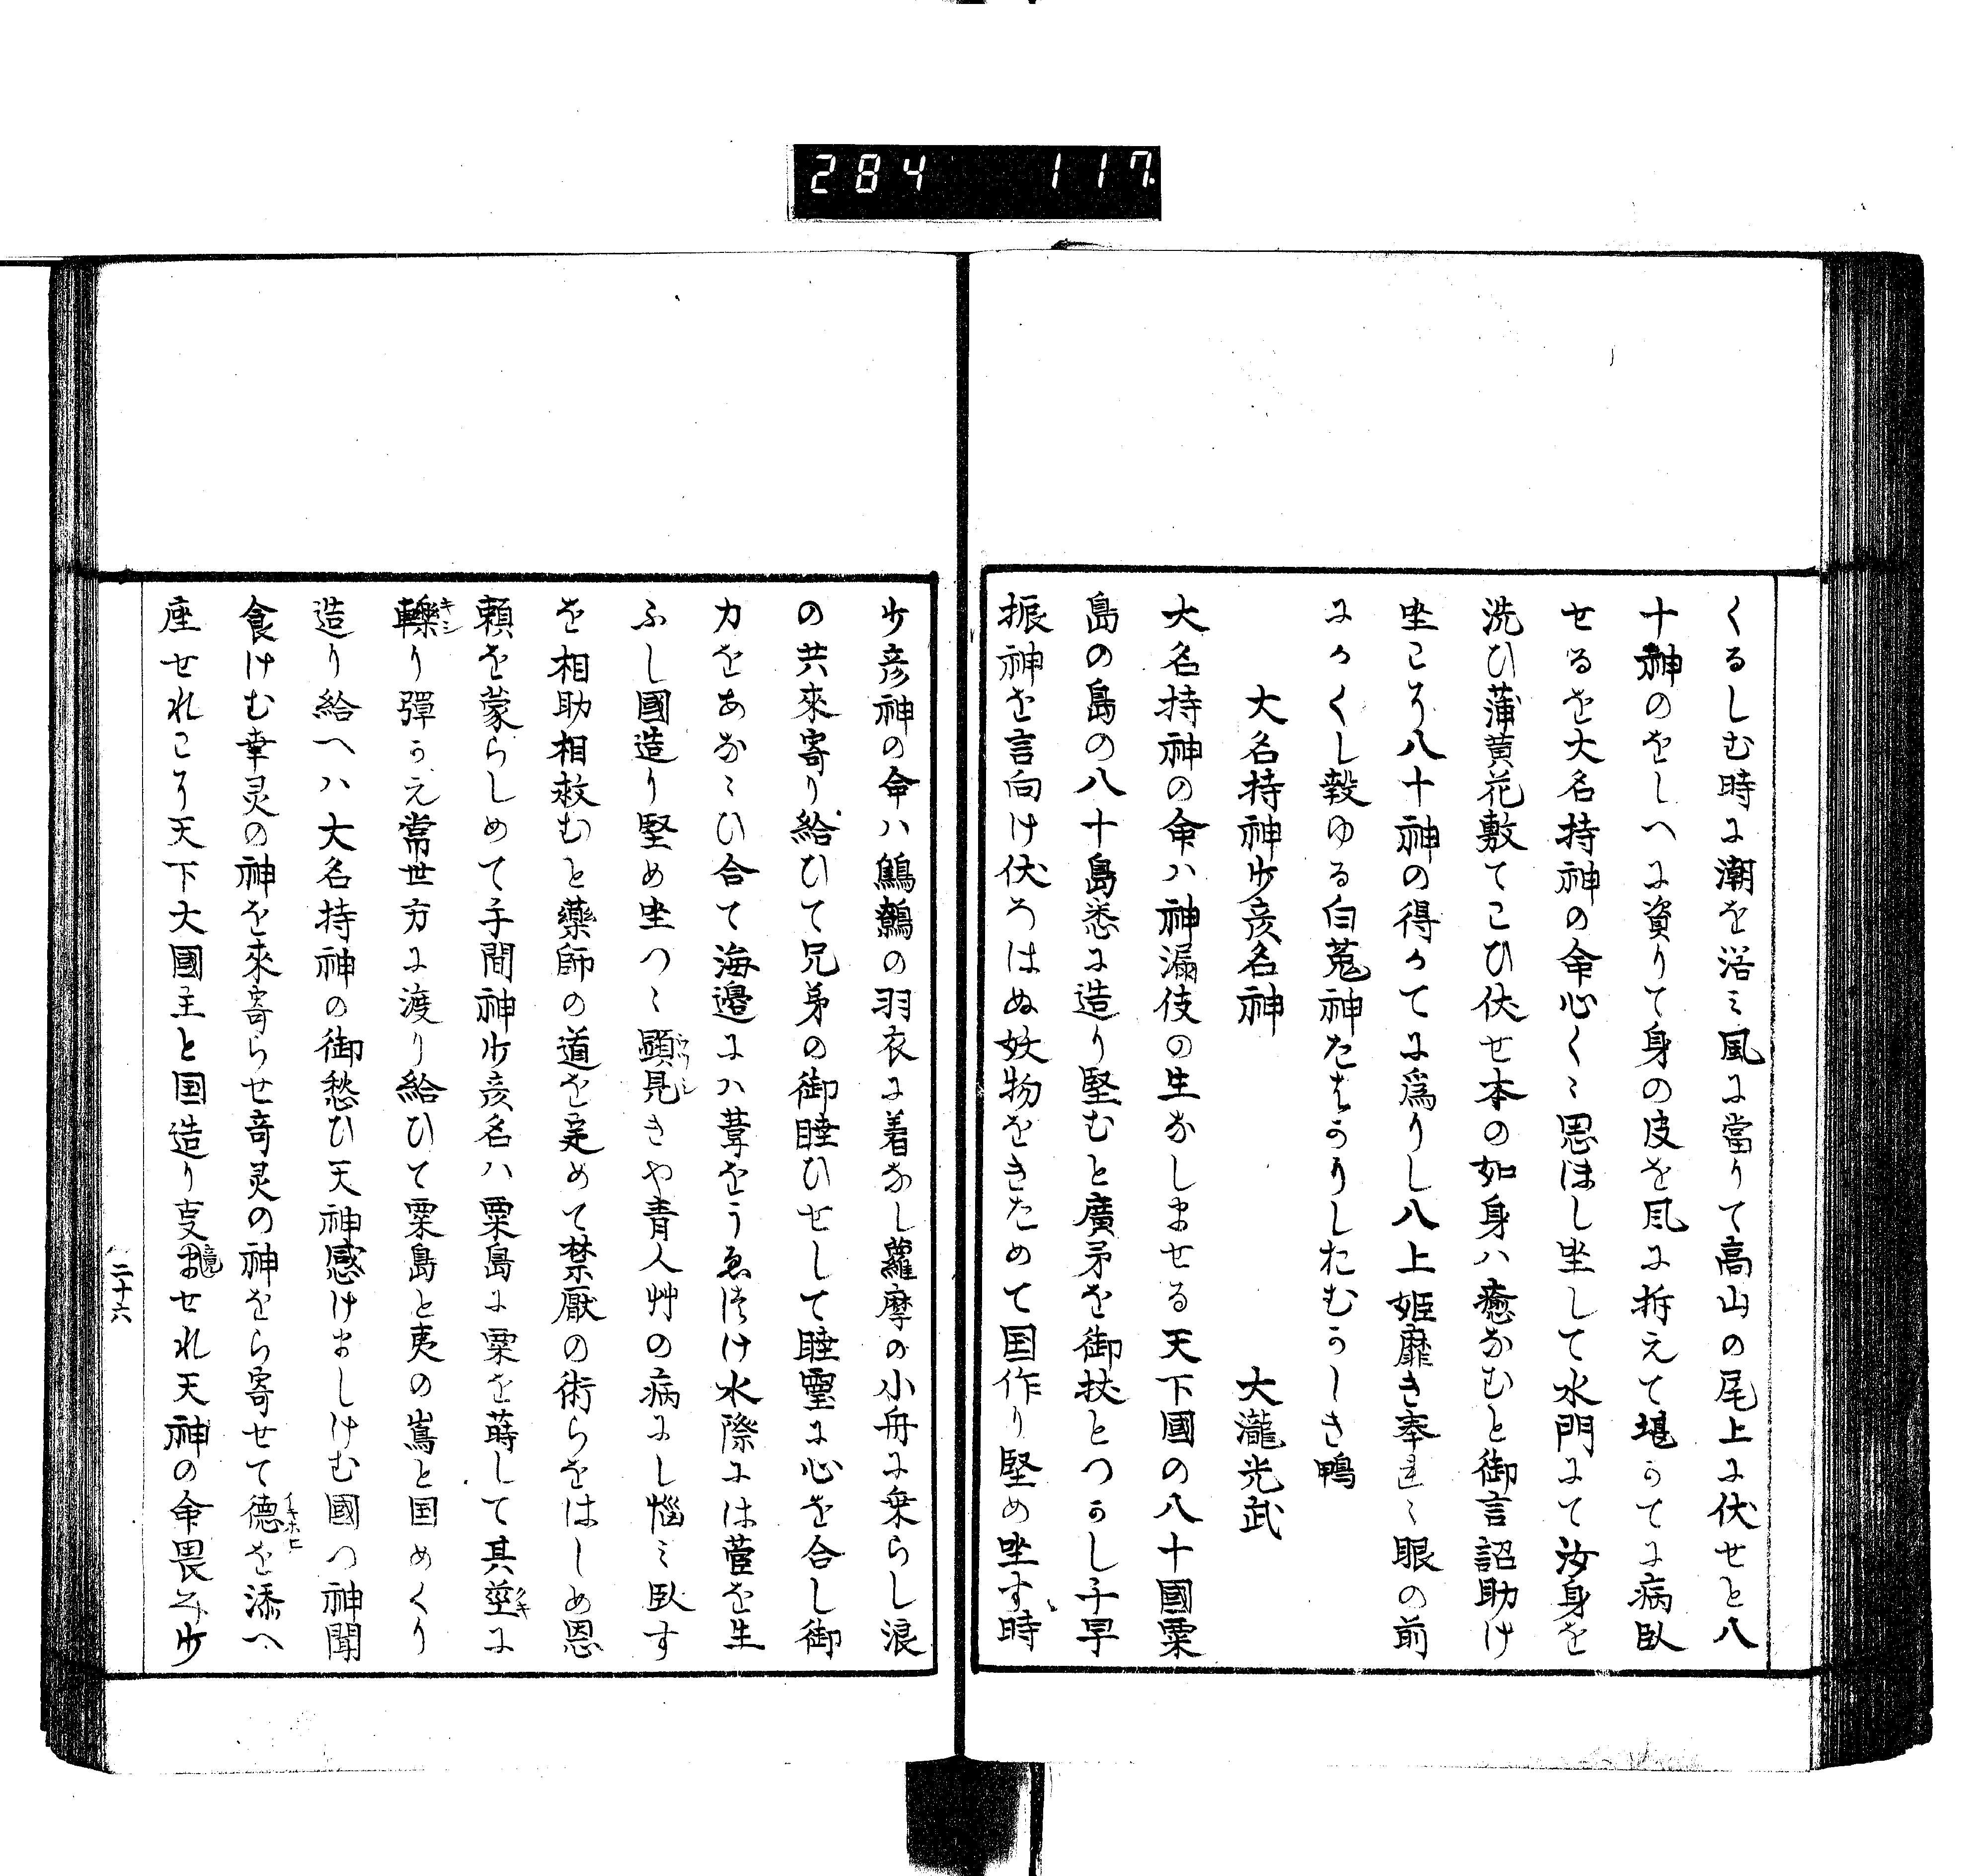 284 117
くるしむ時に潮を浴ミ風に當りて高山の尾上に伏せと八
十神のをしへに資りて身の皮を風に拆えて堪かてに病臥
せるを大名持神の命心くゝ思ほし坐して水門にて汝身を
洗ひ蒲黄花敷てこひ伏せ本の如身ハ癒なむと御言詔助け
坐こそ八十神の得かてに爲りし八上姫靡き奉れゝ眼の前
にかくし毅ゆる白菟神たはかりしたむかしき鴨
大名持神少彦名神 大瀧光武
大名持神の命ハ神漏伎の生なしませる天下國の八十國粟
島の島の八十島悉に造り堅むと廣矛を御扙とつかし千早
振神を言向け伏ろはぬ妖物をきためて国作り堅め坐す時
少彦神の命ハ鷦鷯の羽衣に着なし蘿摩の小舟に乗らし浪
の共來寄り給ひて兄弟の御睦ひせして睦靈に心を合し御
力をあなゝひ合て海邊にハ葦をうゑ付け水際には菅を生
ふし國造り堅め坐つゝ顕見きや青人艸の病にし惱ミ臥す
を相助相救むと藥師の道を定めて禁厭の術らをはしめ恩
頼を蒙らしめて手間神少彦名ハ粟島に粟を蒔して其莖に
轢り彈かえ常世方に渡り給ひて粟島と夷の嶌と国めくり
造り給へハ大名持神の御愁ひ天神感けましけむ國つ神聞
食けむ幸灵の神を來寄らせ竒灵の神をら寄せて德を添へ
座せれこそ天下大國主と国造り竟ませれ天神の命畏み少
二十六